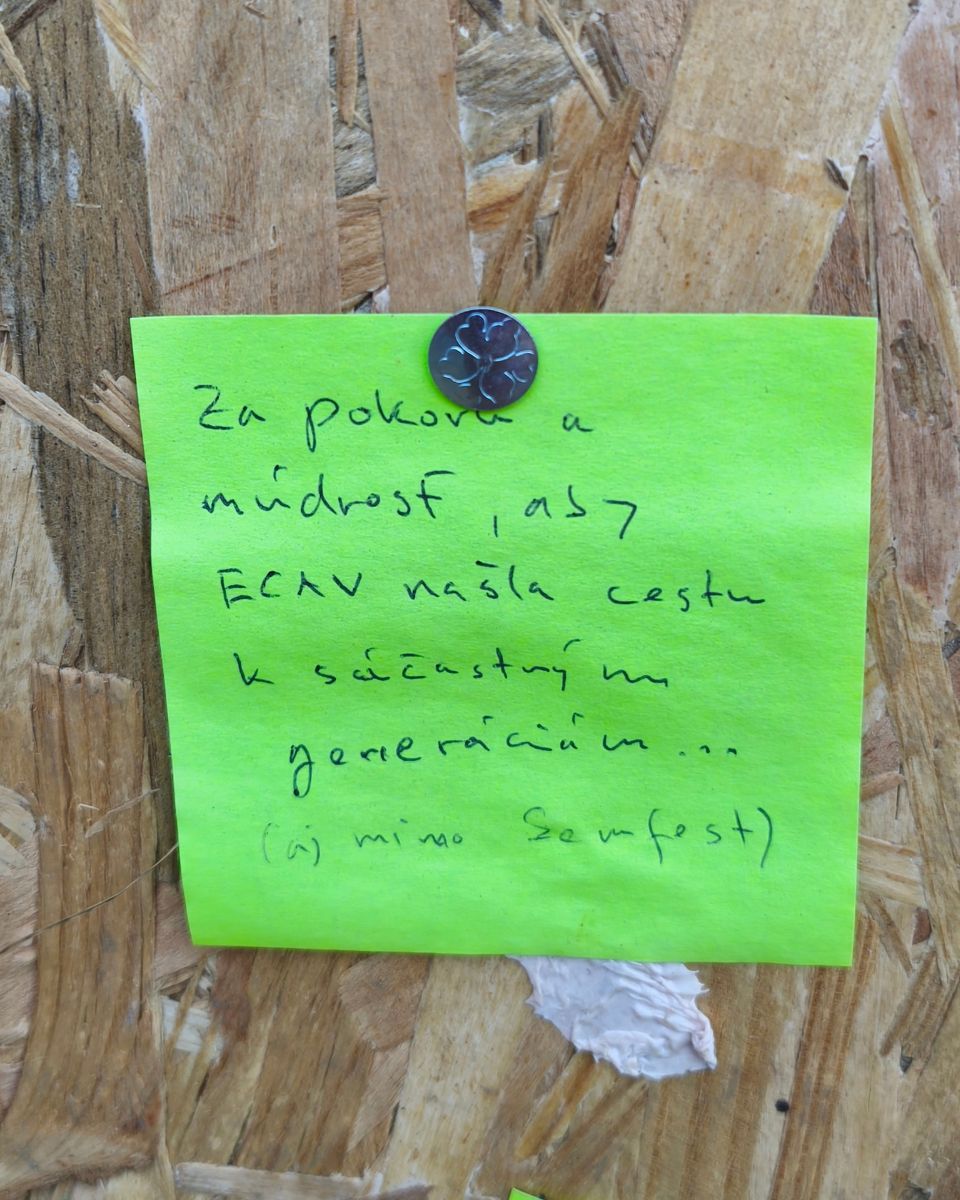 Za pokoru a
múdrosť, aby
ECAV našla cestu
k súčastným
generáciám...
(aj mimo Semfest)